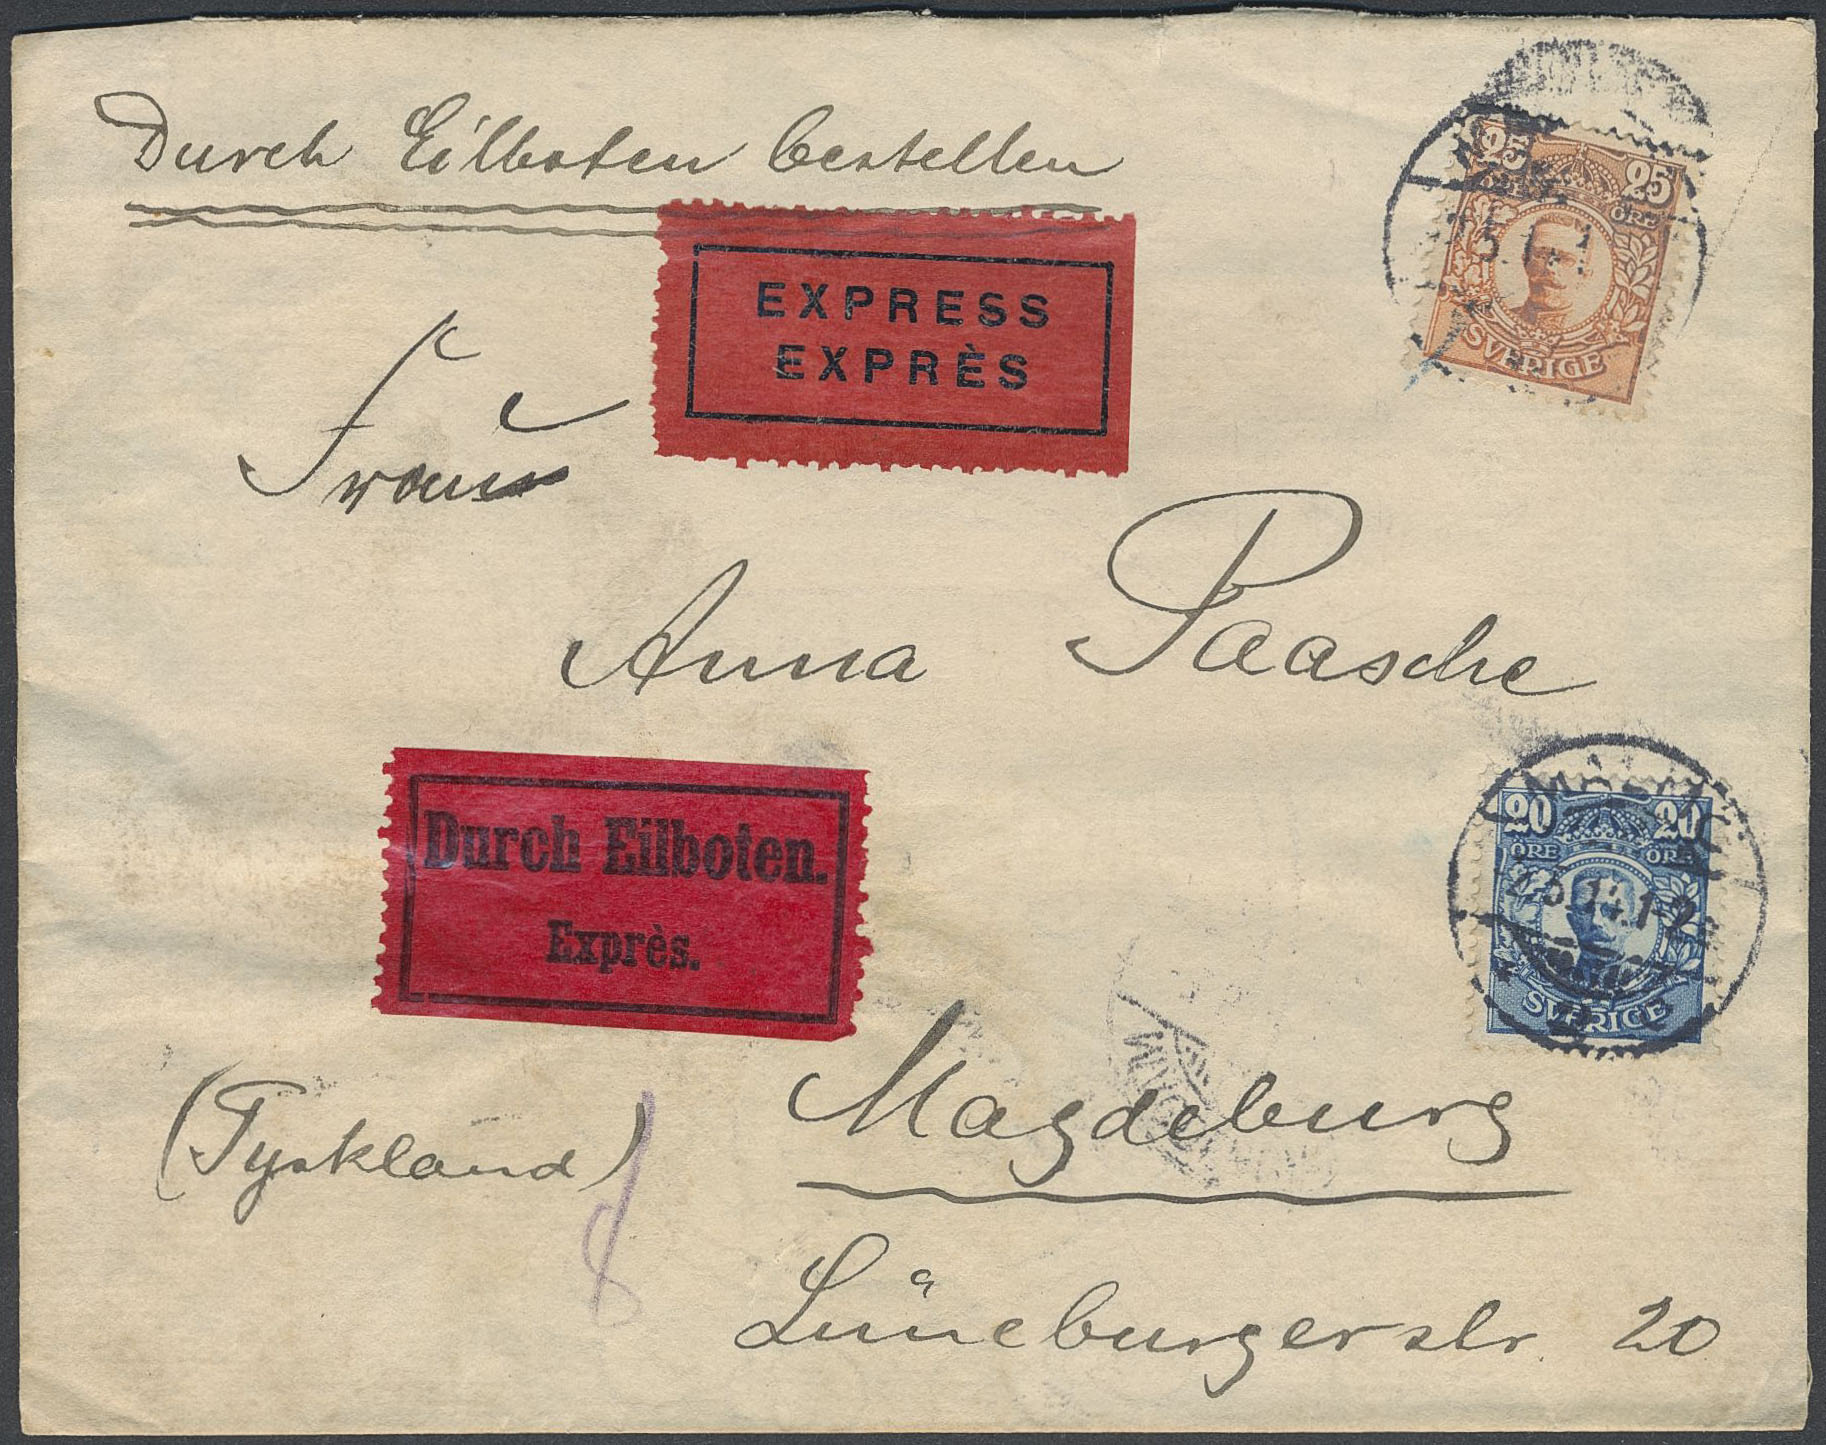 Durch Eilboten bestellen
EXPRESS
EXPRÈS
25 25
ÖRE ÖRE
SVERIGE
Frau
Anna Paasche
20 20
ÖRE ÖRE
SVERIGE
Durch Eilboten.
Exprès.
Magdeburg
(Tyskland)
Lüneburgerstr. 20